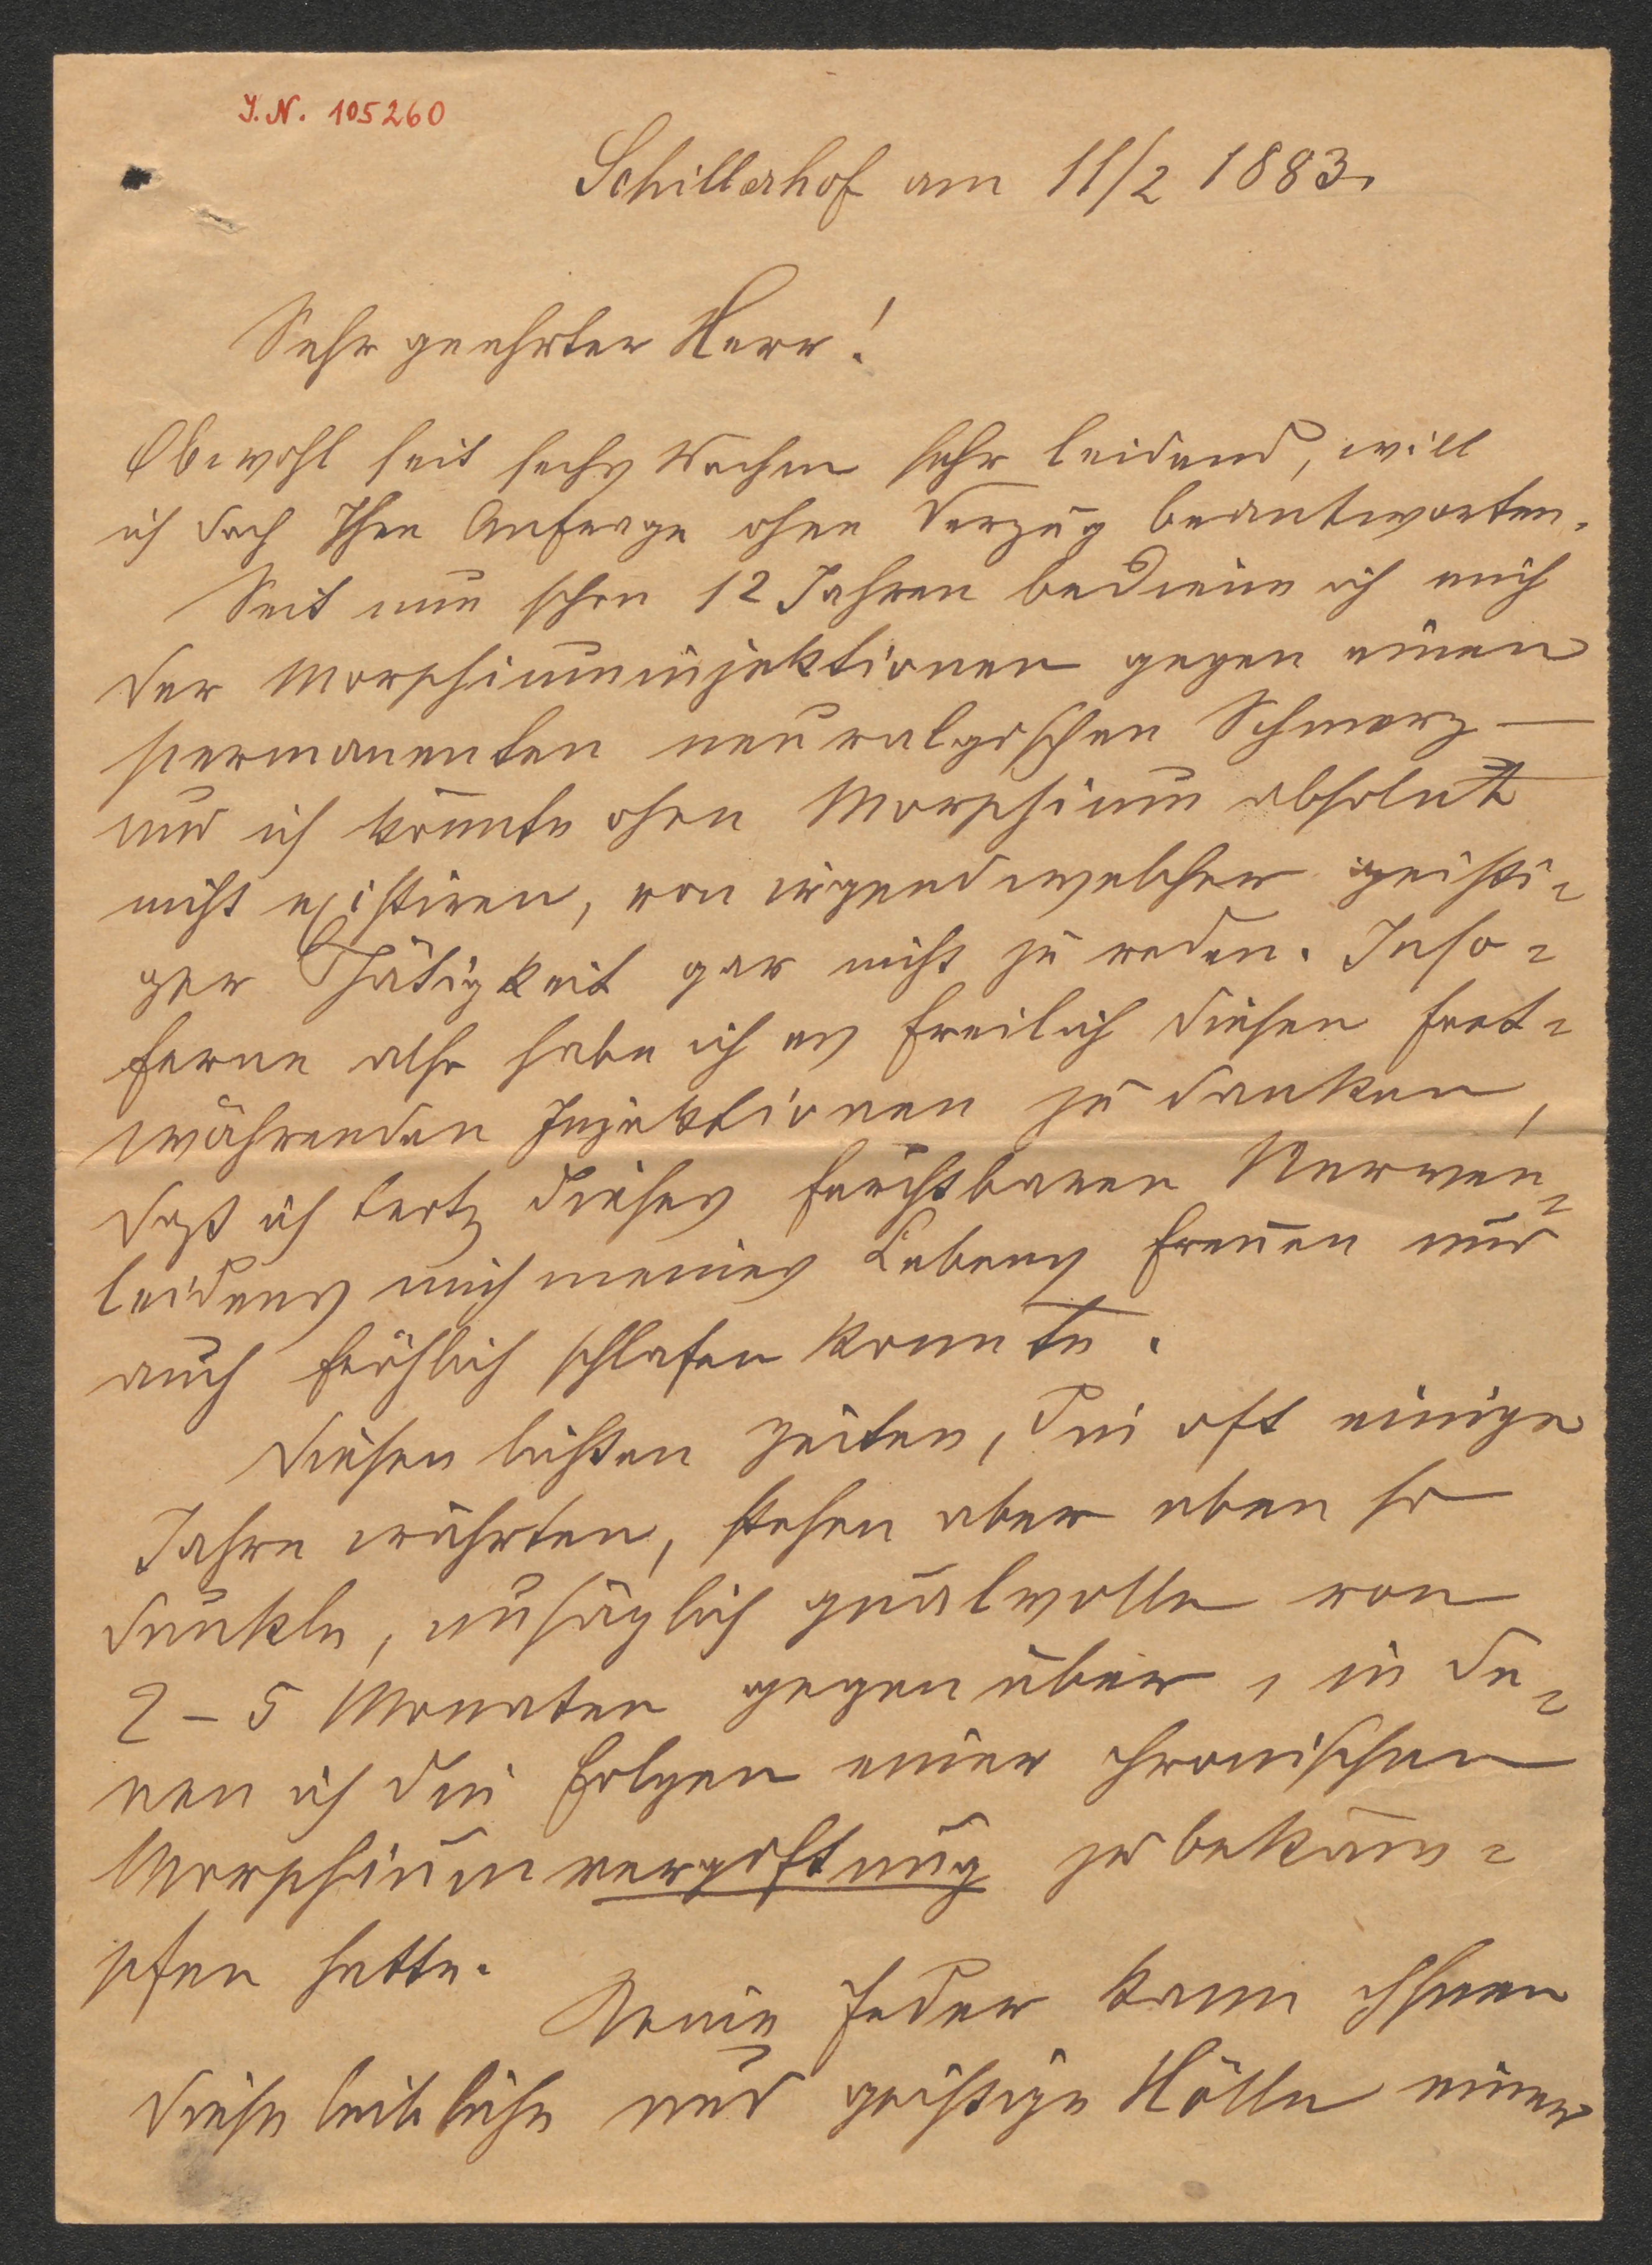 J.N. 105260
Schillerhof am 11/2 1883.
Sehr geehrter Herr!
Obwohl seit sechs Wochen sehr leidend, will
ich doch Ihre Anfrage ohne Verzug beantworten.
Seit nun schon 12 Jahren bediene ich mich
der Morphiuminjektionen gegen einen
permanenten neuralgischen Schmerz —
und ich könnte ohne Morphium absolut
nicht existiren, von irgendwelcher geisti=
ger Thätigkeit gar nicht zu reden. Inso=
ferne also habe ich es freilich diesen fort=
währenden Injektionen zu danken,
daß ich trotz dieses furchtbaren Nerven=
leidens mich meines Lebens freuen und
auch fröhlich schlafen konnte.
Diesen lichten Zeiten, die oft einige
Jahre währten, stehen aber eben so
dunkle, unsäglich qualvolle von
2 – 5 Monaten gegenüber, in de=
nen ich die Folgen einer chronischen
Morphiumvergiftung zu bekäm=
pfen hatte.
Keine Feder kann Ihnen
diese leibliche und geistige Hölle einer